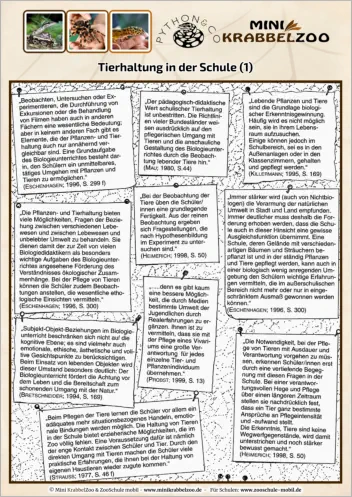 PYTHON & CO
MINI
KRABBELZOO
Tierhaltung in der Schule (1)
„Beobachten, Untersuchen oder Ex-
perimentieren, die Durchführung von
Exkursionen oder die Behandlung
von Filmen haben auch in anderen
Fächern eine wesentliche Bedeutung;
aber in keinem anderen Fach gibt es
Elemente, die der Pflanzen- und Tier-
haltung auch nur annähernd ver-
gleichbar sind. Eine Grundaufgabe
des Biologieunterrichtes besteht dar-
in, den Schülern ein unmittelbares,
tätiges Umgehen mit Pflanzen und
Tieren zu ermöglichen.“
(ESCHENHAGEN; 1996, S. 299 f)
„Der pädagogisch-didaktische
Wert schulischer Tierhaltung
ist unbestritten. Die Richtlini-
en vieler Bundesländer wei-
sen ausdrücklich auf den
pflegerischen Umgang mit
Tieren und die anschauliche
Gestaltung des Biologieunter-
richtes durch die Beobach-
tung lebender Tiere hin.“
(MAU; 1980, S.44)
„Lebende Pflanzen und Tiere
sind die Grundlage biologi-
scher Erkenntnisgewinnung.
Häufig wird es nicht möglich
sein, sie in ihrem Lebens-
raum aufzusuchen.
Einige können jedoch im
Schulbereich, sei es in den
Außenanlagen oder in den
Klassenzimmern, gehalten
und gepflegt werden.“
(KILLERMANN; 1995, S. 169)
„Die Pflanzen- und Tierhaltung bieten
viele Möglichkeiten, Fragen der Bezie-
hung zwischen verschiedenen Lebe-
wesen und zwischen Lebewesen und
unbelebter Umwelt zu behandeln. Sie
dienen damit der zur Zeit von vielen
Biologiedidaktikern als besonders
wichtige Aufgabe des Biologieunter-
richtes angesehenen Förderung des
Verständnisses ökologischer Zusam-
menhänge. Bei der Pflege von Tieren
können die Schüler zudem Beobach-
tungen anstellen, die wesentliche etho-
logische Einsichten vermitteln.“
(ESCHENHAGEN; 1996, S. 300)
„Bei der Beobachtung der
Tiere üben die Schüler/
innen eine grundlegende
Fertigkeit. Aus der reinen
Beobachtung ergeben
sich Fragestellungen, die
nach Hypothesenbildung
im Experiment zu unter-
suchen sind.“
(HEIMERICH; 1998, S. 50)
„Immer stärker wird (auch von Nichtbio-
logen) die Verarmung der natürlichen
Umwelt in Stadt und Land empfunden.
Immer deutlicher muss deshalb die For-
derung erhoben werden, dass die Schu-
le auch in dieser Hinsicht eine gewisse
Ausgleichsfunktion übernimmt. Eine
Schule, deren Gelände mit verschieden-
artigen Bäumen und Sträuchern be-
pflanzt ist und in der ständig Pflanzen
und Tiere gepflegt werden, kann auch in
einer biologisch wenig anregenden Um-
gebung den Schülern wichtige Erfahrun-
gen vermitteln, die im außerschulischen
Bereich nicht mehr oder nur in einge-
schränktem Ausmaß gewonnen werden
können.“
(ESCHENHAGEN; 1996, S. 300)
„...denn es gibt kaum
eine bessere Möglich-
keit, die durch Medien
bestimmte Umwelt der
Jugendlichen durch
Realerfahrungen zu er-
gänzen. Ihnen ist zu
vermitteln, dass sie mit
der Pflege eines Vivari-
ums eine große Ver-
antwortung für jedes
einzelne Tier- und
Pflanzenindividuum
übernehmen.“
(PROBST; 1999, S. 13)
„Subjekt-Objekt-Beziehungen im Biologie-
unterricht beschränken sich nicht auf die
kognitive Ebene; es sind vielmehr auch
emotionale, ethische, ästhetische und voli-
tive Gesichtspunkte zu berücksichtigen.
Beim Einsatz von lebenden Objekten wird
dieser Umstand besonders deutlich: Der
Biologieunterricht fördert die Achtung vor
dem Leben und die Bereitschaft zum
schonenden Umgang mit der Natur.“
(BRETSCHNEIDER; 1994, S. 169)
„Die Notwendigkeit, bei der Pfle-
ge von Tieren mit Ausdauer und
Verantwortung vorgehen zu müs-
sen, erkennen Schüler/innen erst
durch eine vertiefende Begeg-
nung mit diesen Fragen in der
Schule. Bei einer verantwor-
tungsvollen Hege und Pflege
über einen längeren Zeitraum
stellen sie nachdrücklich fest,
dass ein Tier ganz bestimmte
Ansprüche an Pflegeintensität
und -aufwand stellt.
Die Erkenntnis, Tiere sind keine
Wegwerfgegenstände, wird damit
unterstrichen und noch stärker
bewusst gemacht.“
(HEIMERICH; 1998, S. 50)
„Beim Pflegen der Tiere lernen die Schüler vor allem ein
adäquates mehr situationsbezogenes Handeln, emotio-
nale Bindungen werden möglich. Die Haltung von Tieren
in der Schule bietet erzieherische Möglichkeiten, die im
Zoo völlig fehlen. Eine Voraussetzung dafür ist nämlich
der enge Kontakt zwischen Schüler und Tier. Durch den
direkten Umgang mit Tieren machen die Schüler viele
praktische Erfahrungen, die ihnen bei der Haltung von
eigenen Haustieren wieder zugute kommen.“
(STRAUSS; 1977, S. 46 f)
© Mini KrabbelZoo & ZooSchule mobil - www.minikrabbelzoo.de – Für Schulen: www.zooschule-mobil.de